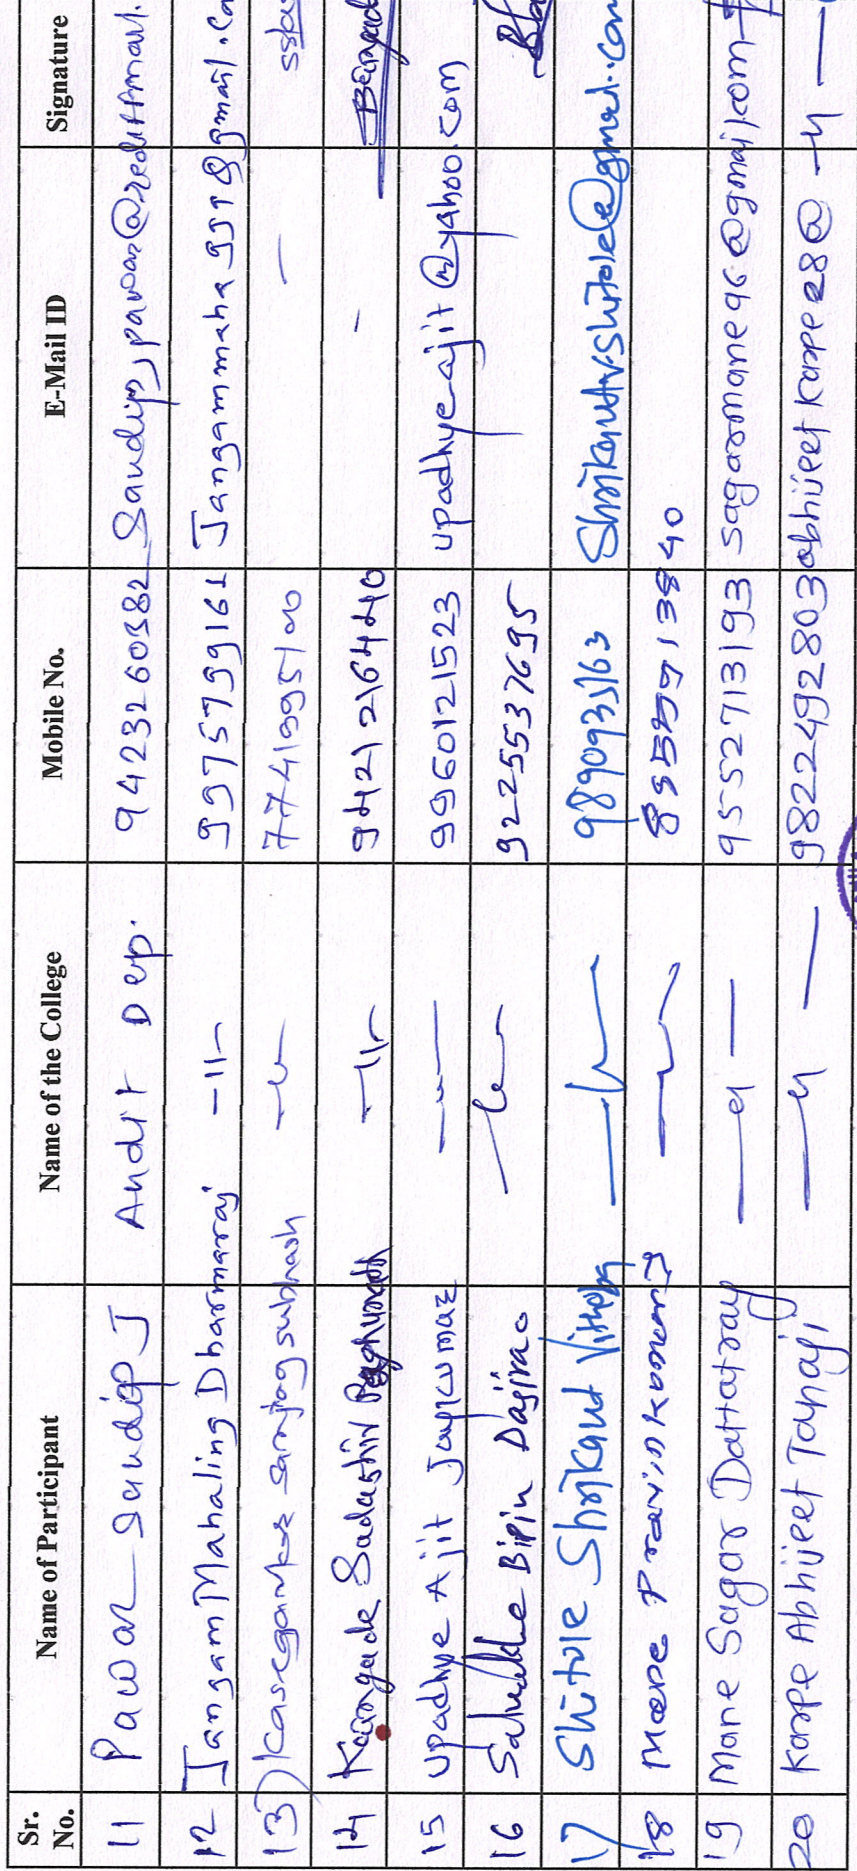 Sr. No. Name of Participant Name of the College Mobile No. E-Mail ID Signature
11 Pawar Sandip J Audit Dep. 9423260382
12 Jangam Mahaling Dharmaraj -11- 9975799161 Jangammaha991@gmail.co
13) Kasegaonkar subhash 7741995100 -
14 Sadashiv 9421216440 -
15 Upadhye Ajit Jaykumar -"- 9960121523 upadhyeajit@yahoo.com
16 Salunkhe Bipin Dajirao 9225537695
17 Shitole Shrikant Vithoba 9890935163 Shrikantvshitole@gmail.com
18 More Pravinkumar
19 Mane Sagar Dattatray —"— 9552713193 sagarmane96@gmail.com
20 Karpe Abhijeet Tanaji —"— 9822492803 abhijeetkarpe28@ —"—